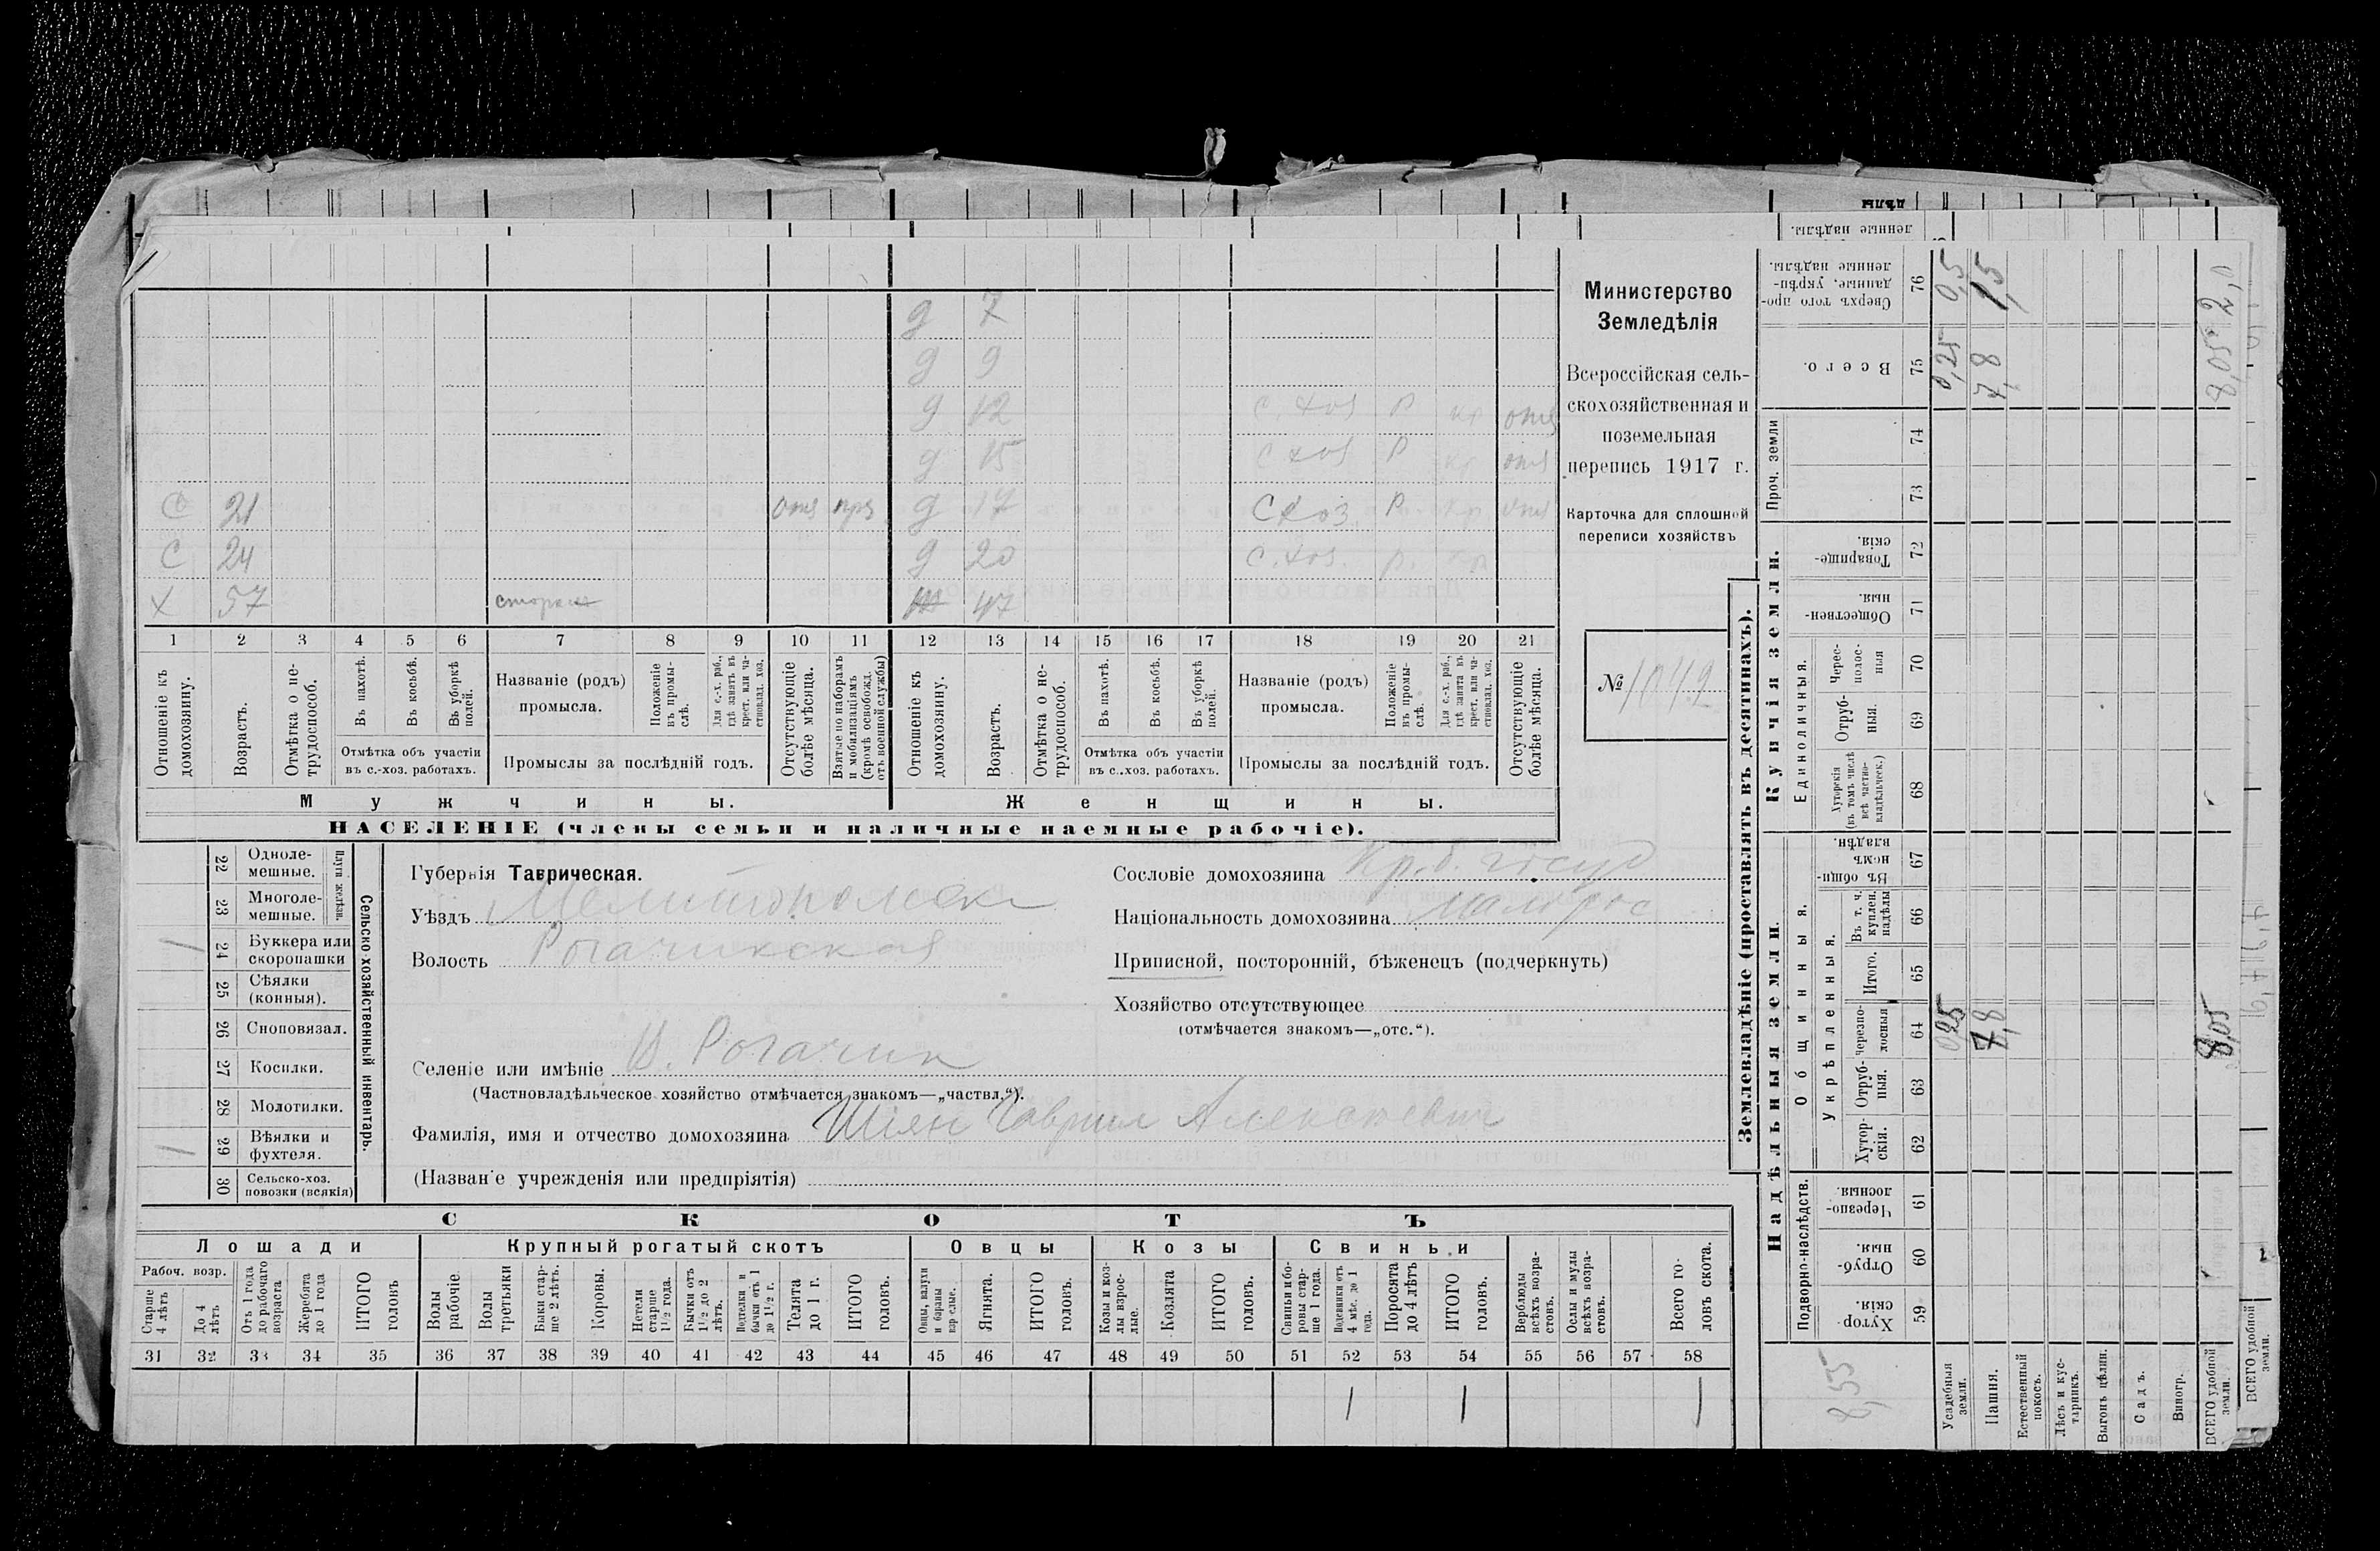 дѣлы
ленные надѣлы.
Министерство
Земледѣлія
Всероссійская сель-
скохозяйственная и
поземельная
перепись 1917 г.
Карточка для сплошной
переписи хозяйствъ
№ 1042
д 7
д 9
д 12 с. хоз р кр отс
д 15 с хоз р кр отс
С 21 отс д 17 С хоз р. кр отс
С 24 д 20 с. хоз. р. кр
Х 57 сторож 47
1 2 3 4 5 6 7 8 9 10 11 12 13 14 15 16 17 18 19 20 21
Отношеніе къ домохозяину.
Возрастъ.
Отмѣтка о не-трудоспособ.
Въ пахотѣ.
Въ косьбѣ.
Въ уборкѣ полей.
Отмѣтка объ участіи
въ с.-хоз. работахъ.
Названіе (родъ)
промысла.
Положеніе въ промы-слѣ.
Для с.-х. раб., гдѣ занятъ въ крест. или ча-стновлад. хоз.
Промыслы за послѣдній годъ.
Отсутствующіе болѣе мѣсяца.
Взятые по наборамъ и мобилизаціямъ (кромѣ освобожд. отъ военной службы)
Отношеніе къ домохозяину.
Возрастъ.
Отмѣтка о не-трудоспособ.
Въ пахотѣ.
Въ косьбѣ.
Въ уборкѣ полей.
Отмѣтка объ участіи
въ с.-хоз. работахъ.
Названіе (родъ)
промысла.
Положеніе въ промы-слѣ.
Для с.-х. раб., гдѣ занята въ крест. или ча-стновлад. хоз.
Промыслы за послѣдній годъ.
Отсутствующіе болѣе мѣсяца.
Мужчины. Женщины.
НАСЕЛЕНІЕ (члены семьи и наличные наемные рабочіе).
Сельско-хозяйственный инвентарь.
Плуги желѣзн.
22 Одноле-мешные.
23 Многоле-мешные.
1 24 Буккера или скоропашки
25 Сѣялки (конныя).
26 Сноповязал.
27 Косилки.
28 Молотилки.
1 29 Вѣялки и фухтеля.
30 Сельско-хоз. повозки (всякія)
Губернія Таврическая.
Уѣздъ Мелитопольск
Волость Рогачикская
Селеніе или имѣніе В. Рогачик
(Частновладѣльческое хозяйство отмѣчается знакомъ—„частвл.“).
Фамилія, имя и отчество домохозяина Шіян Гаврил Алексѣевич
(Названіе учрежденія или предпріятія)
Сословіе домохозяина кр. б. госуд
Національность домохозяина малорос
Приписной, посторонній, бѣженецъ (подчеркнуть)
Хозяйство отсутствующее
(отмѣчается знакомъ—„отс.“).
СКОТЪ
Лошади Крупный рогатый скотъ Овцы Козы Свиньи
Рабоч. возр.
Старше 4 лѣтъ
До 4 лѣтъ
Отъ 1 года до рабочаго возраста
Жеребята до 1 года
ИТОГО головъ
Волы рабочіе.
Волы третьяки
Быки стар-ше 2 лѣтъ.
Коровы.
Нетели старше 1½ года.
Бычки отъ 1½ до 2 лѣтъ.
Подтелки и бычки отъ 1 до 1½ г.
Телята до 1 г.
ИТОГО головъ.
Овцы, валухи и бараны взрослые.
Ягнята.
ИТОГО головъ.
Козы и коз-лы взрос-лые.
Козлята
ИТОГО головъ.
Свиньи и бо-ровы стар-ше 1 года.
Подсвинки отъ 4 мѣс. до 1 года.
Поросята до 4 лѣтъ
ИТОГО головъ.
Верблюды всѣхъ возра-стовъ.
Ослы и мулы всѣхъ возра-стовъ.
Всего го-ловъ скота.
31 32 33 34 35 36 37 38 39 40 41 42 43 44 45 46 47 48 49 50 51 52 53 54 55 56 57 58
1 1 1
Землевладѣніе (проставлять въ десятинахъ).
Надѣльныя земли. Купчія земли.
Подворно-наслѣдств.
Общинныя.
Укрѣпленныя.
Единоличныя.
Проч. земли
Хутор-скія. 59
Отруб-ныя. 60
Черезпо-лосныя. 61
Хутор-скія. 62
Отруб-ныя. 63
Черезпо-лосныя 64
Итого. 65
Въ т. ч. куплен. надѣлы 66
Въ общин-номъ владѣн. 67
Хуторскія (въ томъ числѣ всѣ частно-владѣльческ.) 68
Отруб-ныя. 69
Черес-полос-ныя 70
Обществен-ныя. 71
Товарище-скія. 72
73
74
Всего. 75
Сверхъ того про-данные, укрѣп-ленные надѣлы. 76
Усадебныя земли. 0,25 0,25 0,5
Пашня. 7,8 7,8 1,5
Естественный покосъ.
Лѣсъ и кус-тарникъ.
Выгонъ цѣлин.
Садъ.
Виногр.
ВСЕГО удобной земли. 8,05 8,05 2,0
ВСЕГО удобной земли.